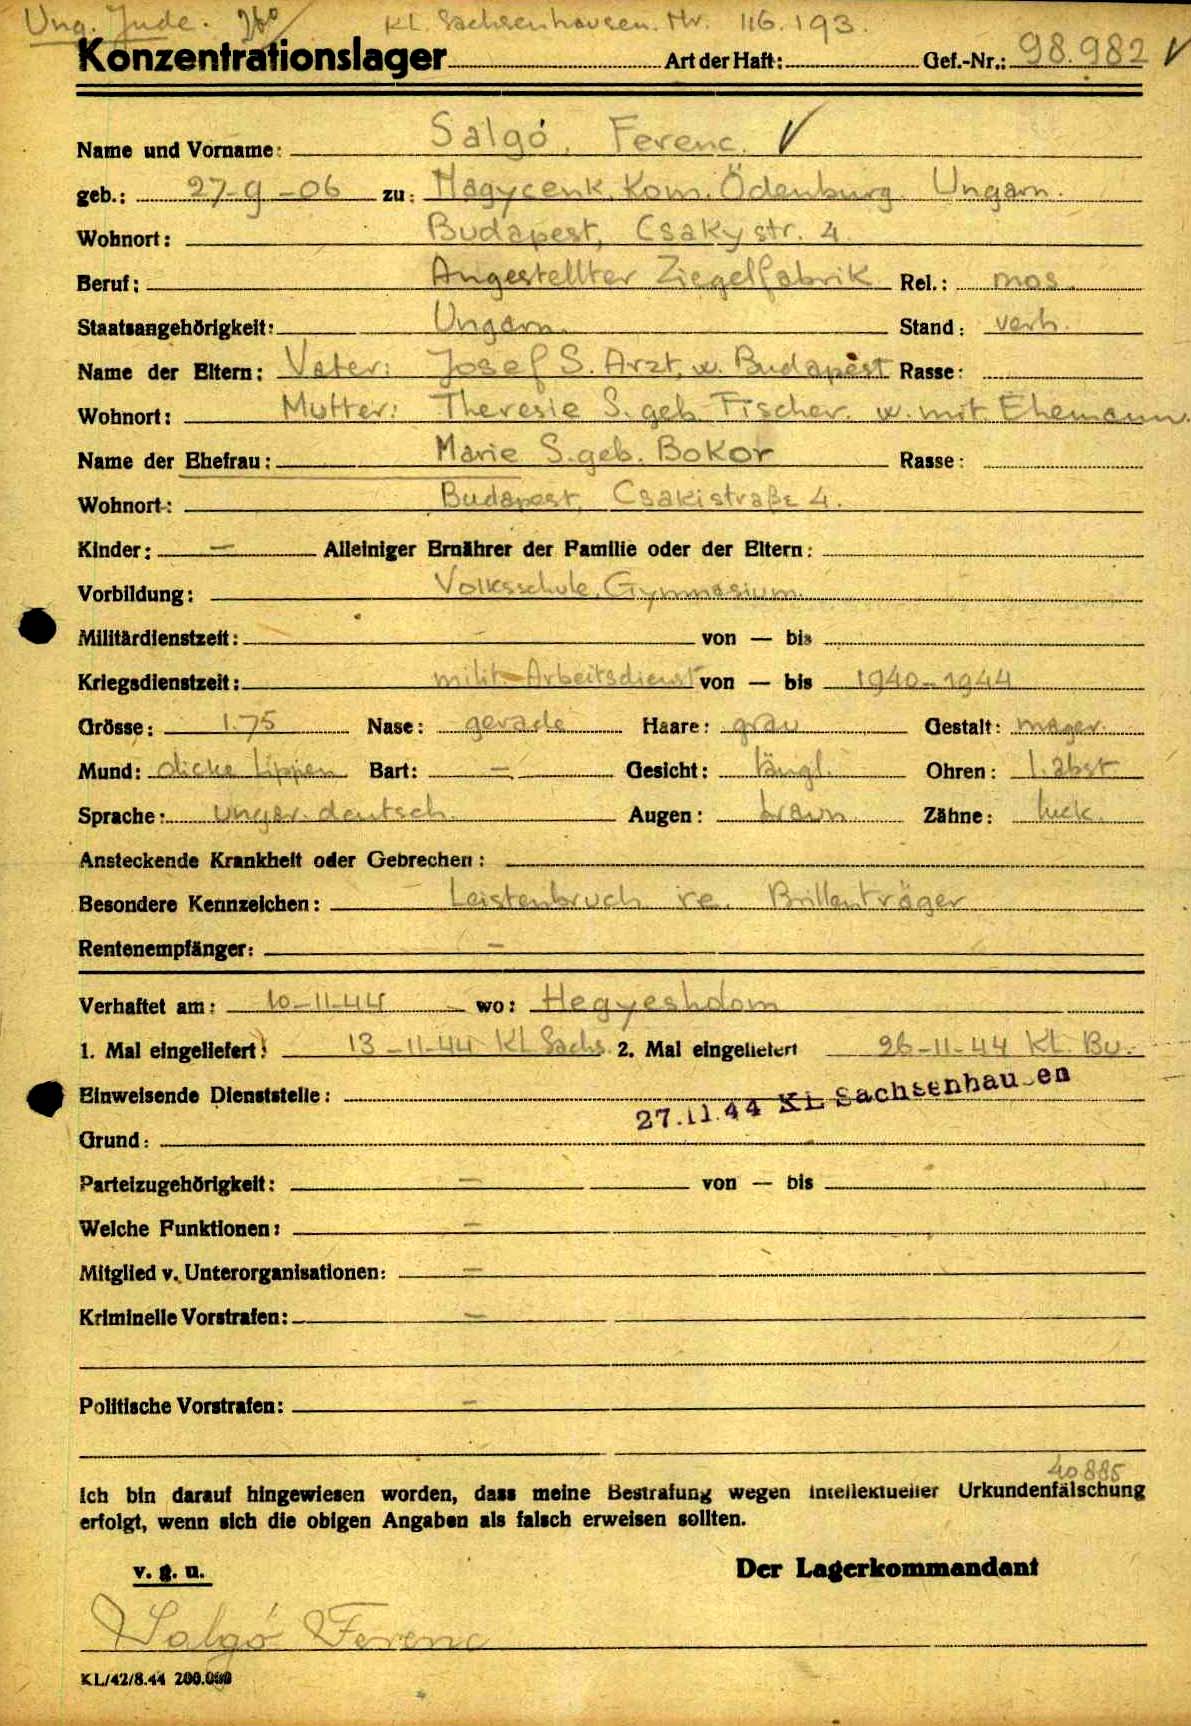 Ung. Jude. KL. Sachsenhausen. Nr. 116.193.
Konzentrationslager Art der Haft: Gef.-Nr.: 98.982
Name und Vorname: Salgó, Ferenc.
geb.: 27-9-06 zu: Nagycenk, Kom. Ödenburg Ungarn.
Wohnort: Budapest, Csaky str. 4
Beruf: Angestellter Ziegelfabrik Rel.: mos.
Staatsangehörigkeit: Ungarn. Stand: verh.
Name der Eltern: Vater: Josef S. Arzt, w. Budapest Rasse:
Wohnort: Mutter: Theresie S. geb. Fischer. w. mit. Ehemann.
Name der Ehefrau: Marie S. geb. Bokor Rasse:
Wohnort: Budapest, Csakistraße 4.
Kinder: — Alleiniger Ernährer der Familie oder der Eltern:
Vorbildung: Volksschule, Gymnasium.
Militärdienstzeit: - von — bis
Kriegsdienstzeit: milit. Arbeitsdienst von — bis 1940-1944
Grösse: 1.75 Nase: gerade Haare: grau Gestalt: mager.
Mund: dicke Lippen Bart: — Gesicht: längl. Ohren: l. abst.
Sprache: ungar. deutsch. Augen: braun Zähne: luck.
Ansteckende Krankheit oder Gebrechen:
Besondere Kennzeichen: Leistenbruch re. Brillenträger
Rentenempfänger: —
Verhaftet am: 10-11-44 wo: Hegyeshdom
1. Mal eingeliefert: 13-11-44 KL Sachs. 2. Mal eingeliefert 26-11-44 KL. Bu.
Einweisende Dienststelle: 27.11.44 KL Sachsenhausen
Grund:
Parteizugehörigkeit: — von — bis
Welche Funktionen: —
Mitglied v. Unterorganisationen: —
Kriminelle Vorstrafen: —
Politische Vorstrafen: —
40885
Ich bin darauf hingewiesen worden, dass meine Bestrafung wegen intellektueller Urkundenfälschung
erfolgt, wenn sich die obigen Angaben als falsch erweisen sollten.
v. g. u. Der Lagerkommandant
Salgó Ferenc
KL/42/8.44 200.000